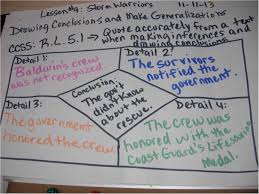 Lesson #9: Storm Warriors 11-11-13
Drawing Conclusions and Make Generalizations
CCSS: R.L.5.1 → Quote accurately from a text
when making inferences and
drawing conclusions.
Detail 1:
Baldwin's crew
was not recognized
Detail 2:
The survivors
notified the
government.
Conclusion:
The gov't
didn't know
about the
rescue.
Detail 3:
The government
honored the crew.
Detail 4:
The crew was
honored with the
Coast Guard's Lifesaving
Medal.